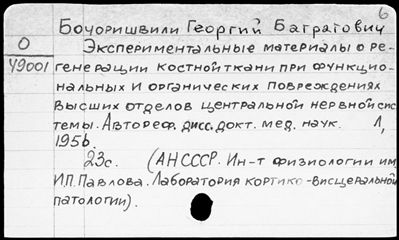 6
Бочоришвили Георгий Багратович
О Экспериментальные материалы о ре-
49001 генерации костной ткани при функцио-
нальных и органических повреждениях
высших отделов центральной нервной сис
темы. Автореф. дисс. докт. мед. наук. Л,
1956.
23с. (АН СССР. Ин-т физиологии им
И.П. Павлова. Лаборатория кортико-висцеральной
патологии).